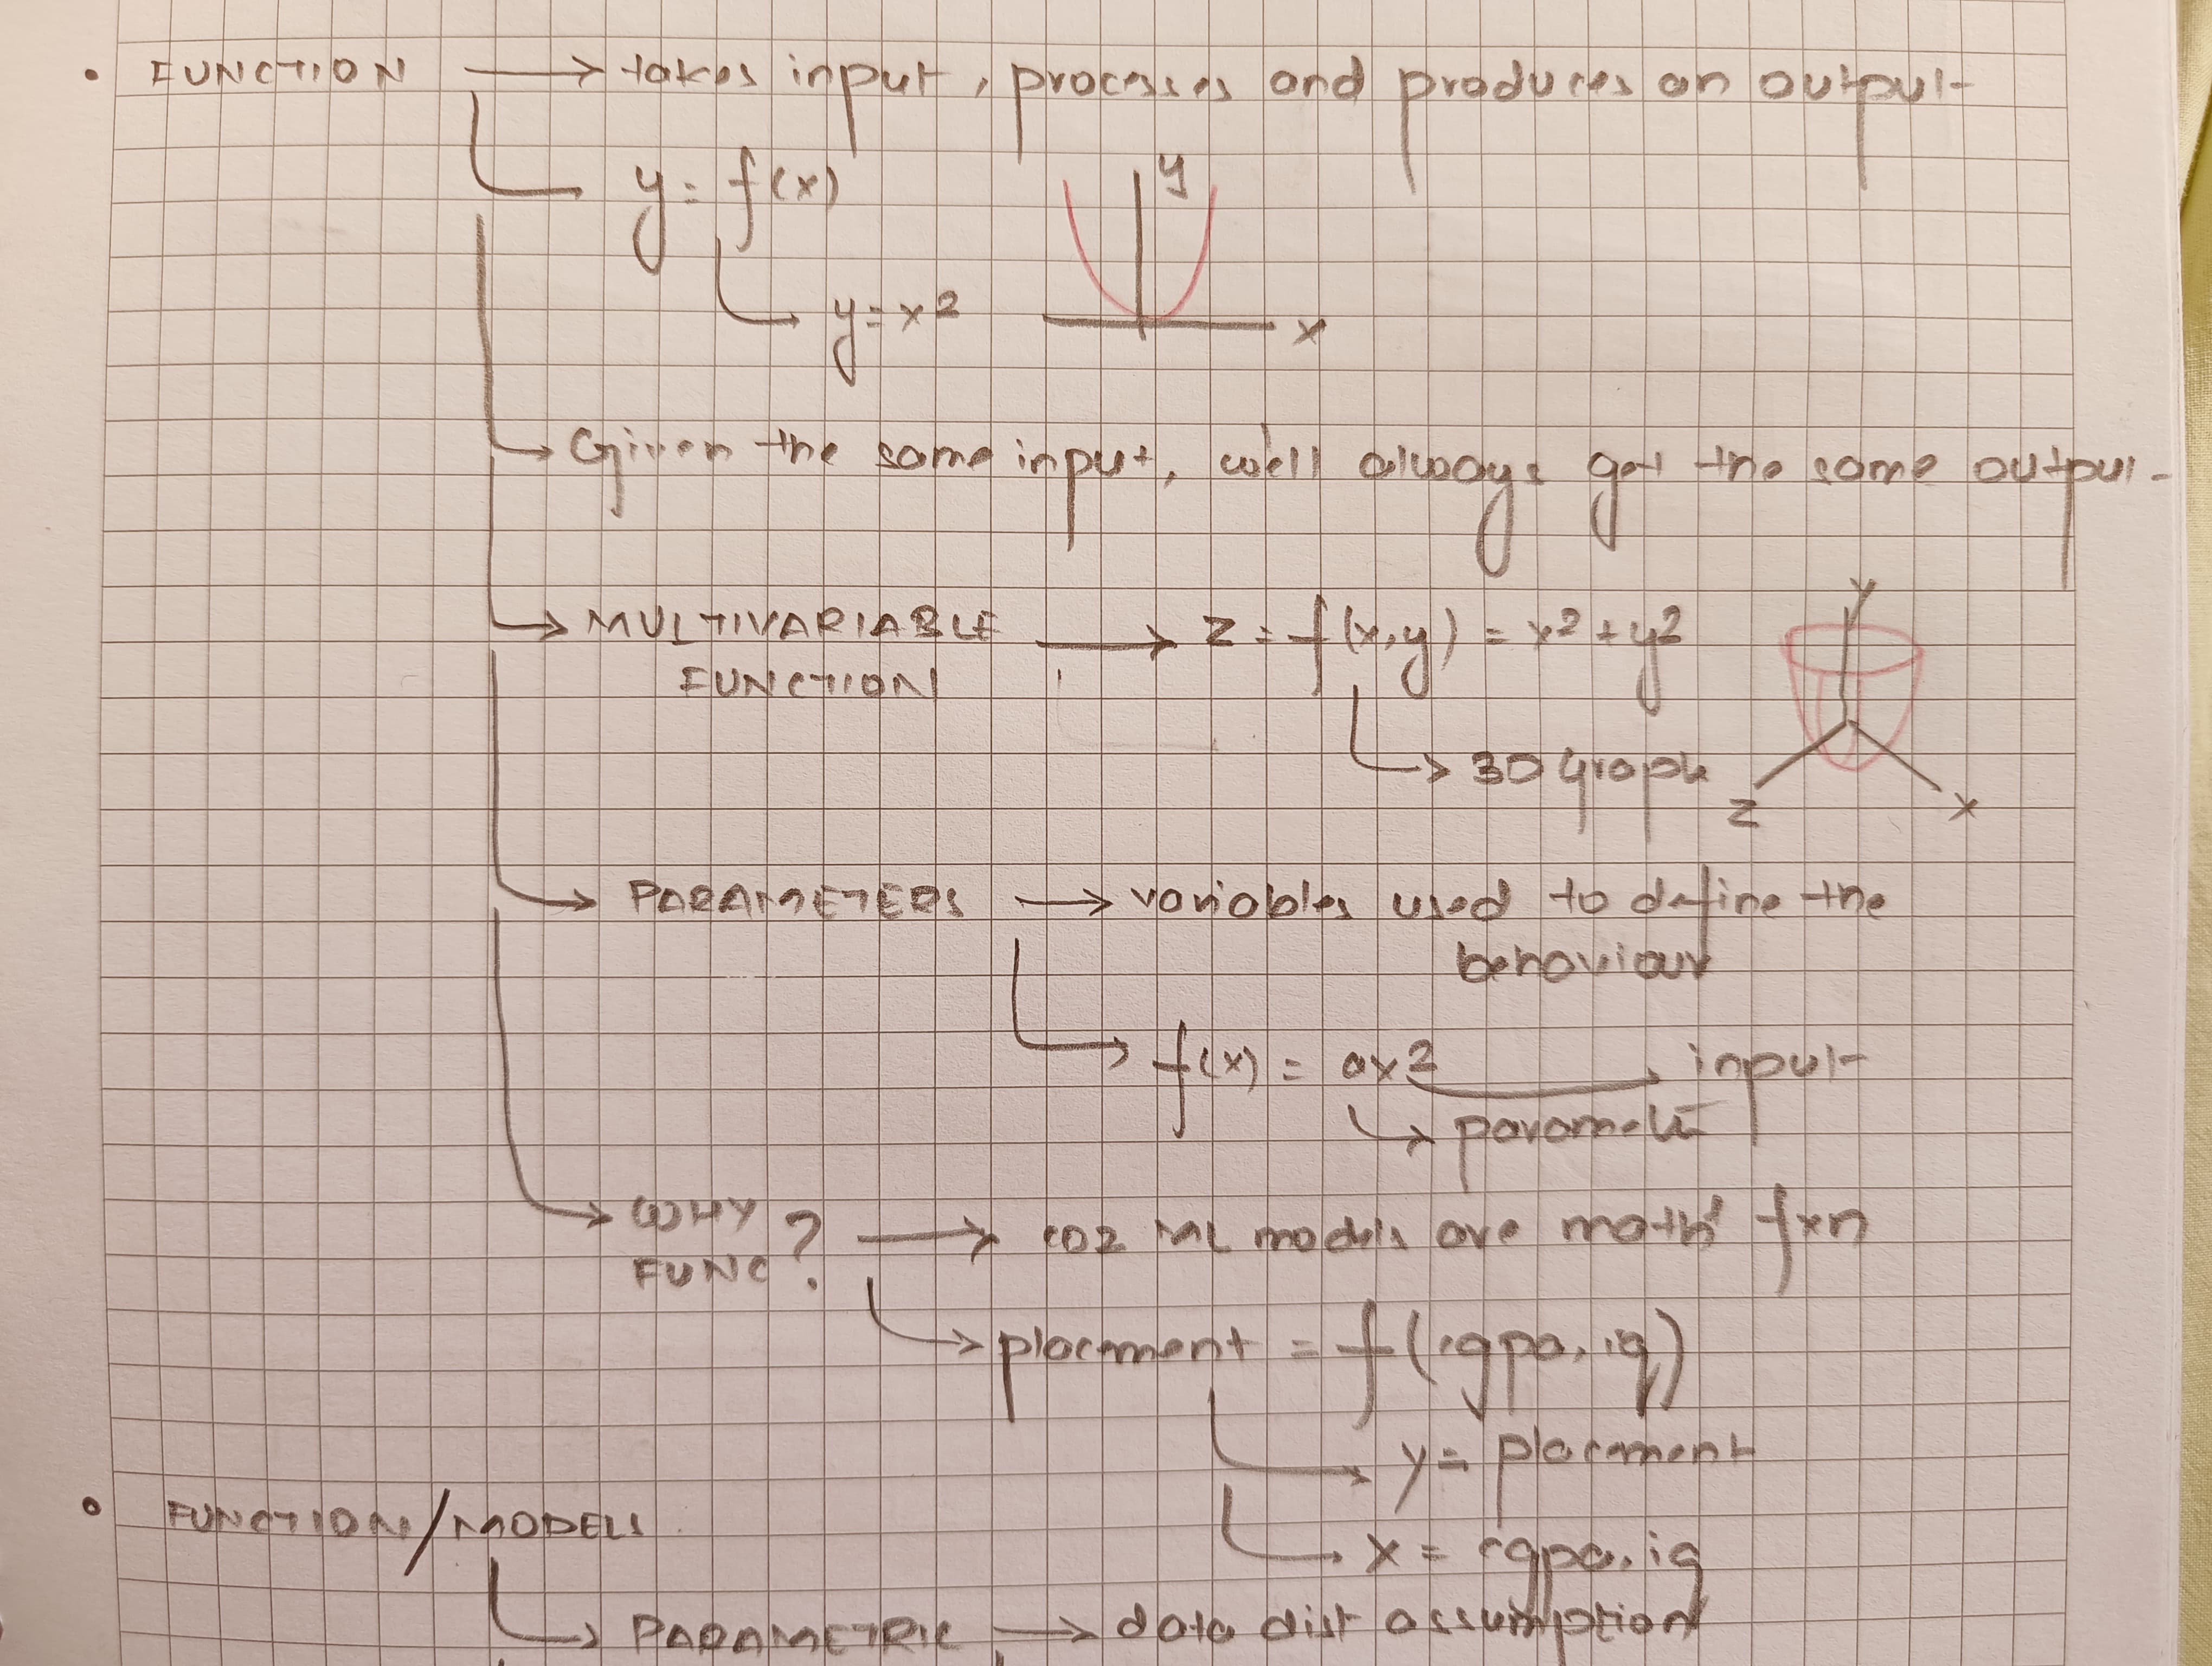 • FUNCTION → takes input, processes and produces an output
y = f(x)
y
y = x²
x
→ Given the same input, we'll always get the same output
→ MULTIVARIABLE FUNCTION → z = f(x,y) = x² + y²
y
→ 3D Graph
z
x
→ PARAMETERS → variables used to define the
behaviour
→ f(x) = ax² → input
→ parameter
→ WHY FUNC? → coz ML models are math fxn
→ placement = f(cgpa, iq)
→ y = placement
• FUNCTION/MODELS
→ x = cgpa, iq
→ PARAMETRIC → data dist assumption